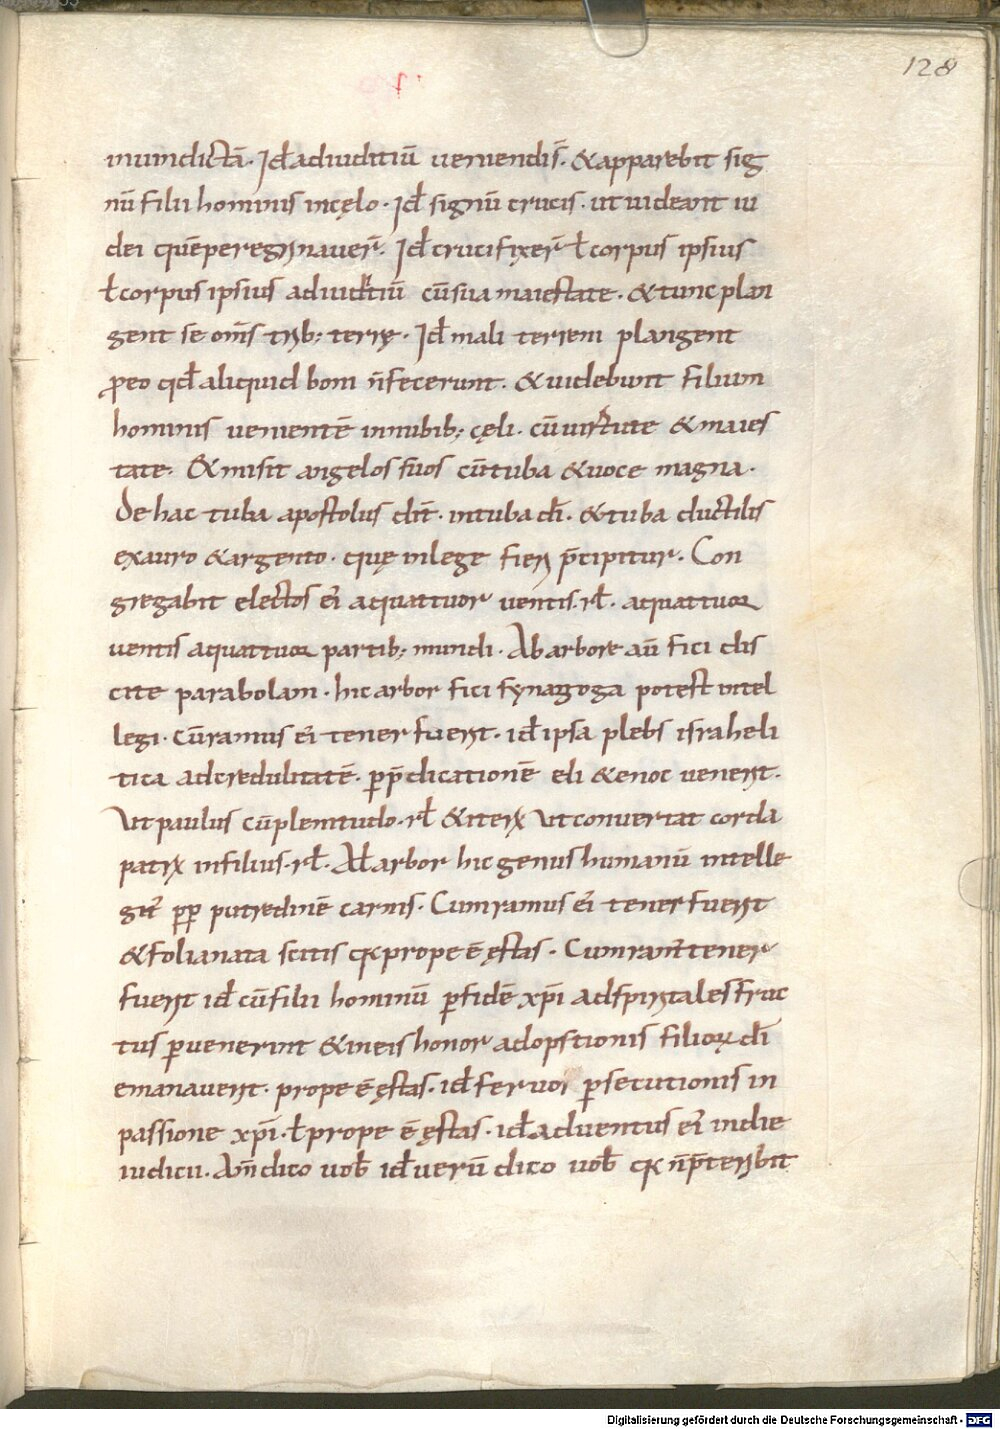 128
inuindictā. Id̄ adiuditiū ueniendis̄. &apparebit sig
nū filii hominis incęlo. Id̄ signū crucis. ut uideant iu
dei quē peregrinauer̄. Id̄ crucifixer̄ ł corpus ipsius
ł corpus ipsius adiuditiū cūsua maiestate. & tunc plan
gent se om̄s trib; terrę. Id̄ mali terreni plangent
ꝓeo qd̄ aliquid boni n̄fecerunt. & uidebunt filium
hominis uenientē innubib; cęli. cūuirtute & maies
tate. & misit angelos suos cūtuba & uoce magna.
De hac tuba apostolus dix̄. intuba dī. & tuba ductilis
exauro & argento. quę inlege fieri p̄cipitur. Con
gregabit electos ei᷒ aquattuor uentis. rł. aquattuor
uentis aquattuor partib; mundi. Ab arbore aū fici dis
cite parabolam. hic arbor fici synagoga potest intel
legi. cūramus ei᷒ tener fuerit. id̄ ipsa plebs israheli
tica adcredulitatē. ꝑp̄dicationē eli & enoc uenerit.
Ut paulus cūplenitudo. rł & iterꝝ ut conuertat corda
patrꝝ infilius. rł. Ał arbor hic genus humanū intelle
git᷒ ꝓꝑ putredinē carnis. Cumramus ei᷒ tener fuerit
& folia nata scitis qꝛ prope ē ęstas. Cumram᷒ tener
fuerit id̄ cūfilii hominū ꝑfidē xp̄i adspiritales fruc
tus ꝑuenerint & ineis honor adopstionis filioꝝ dī
emanauerit. prope ē ęstas. id̄ feruor ꝑsecutionis in
passione xp̄i. ł prope ē ęstas. id̄ aduentus ei᷒ indie
iudicii. Am̄ dico uob̄ id̄ uerū dico uob̄ qꝛ n̄p̄teribit
Digitalisierung gefördert durch die Deutsche Forschungsgemeinschaft - DFG